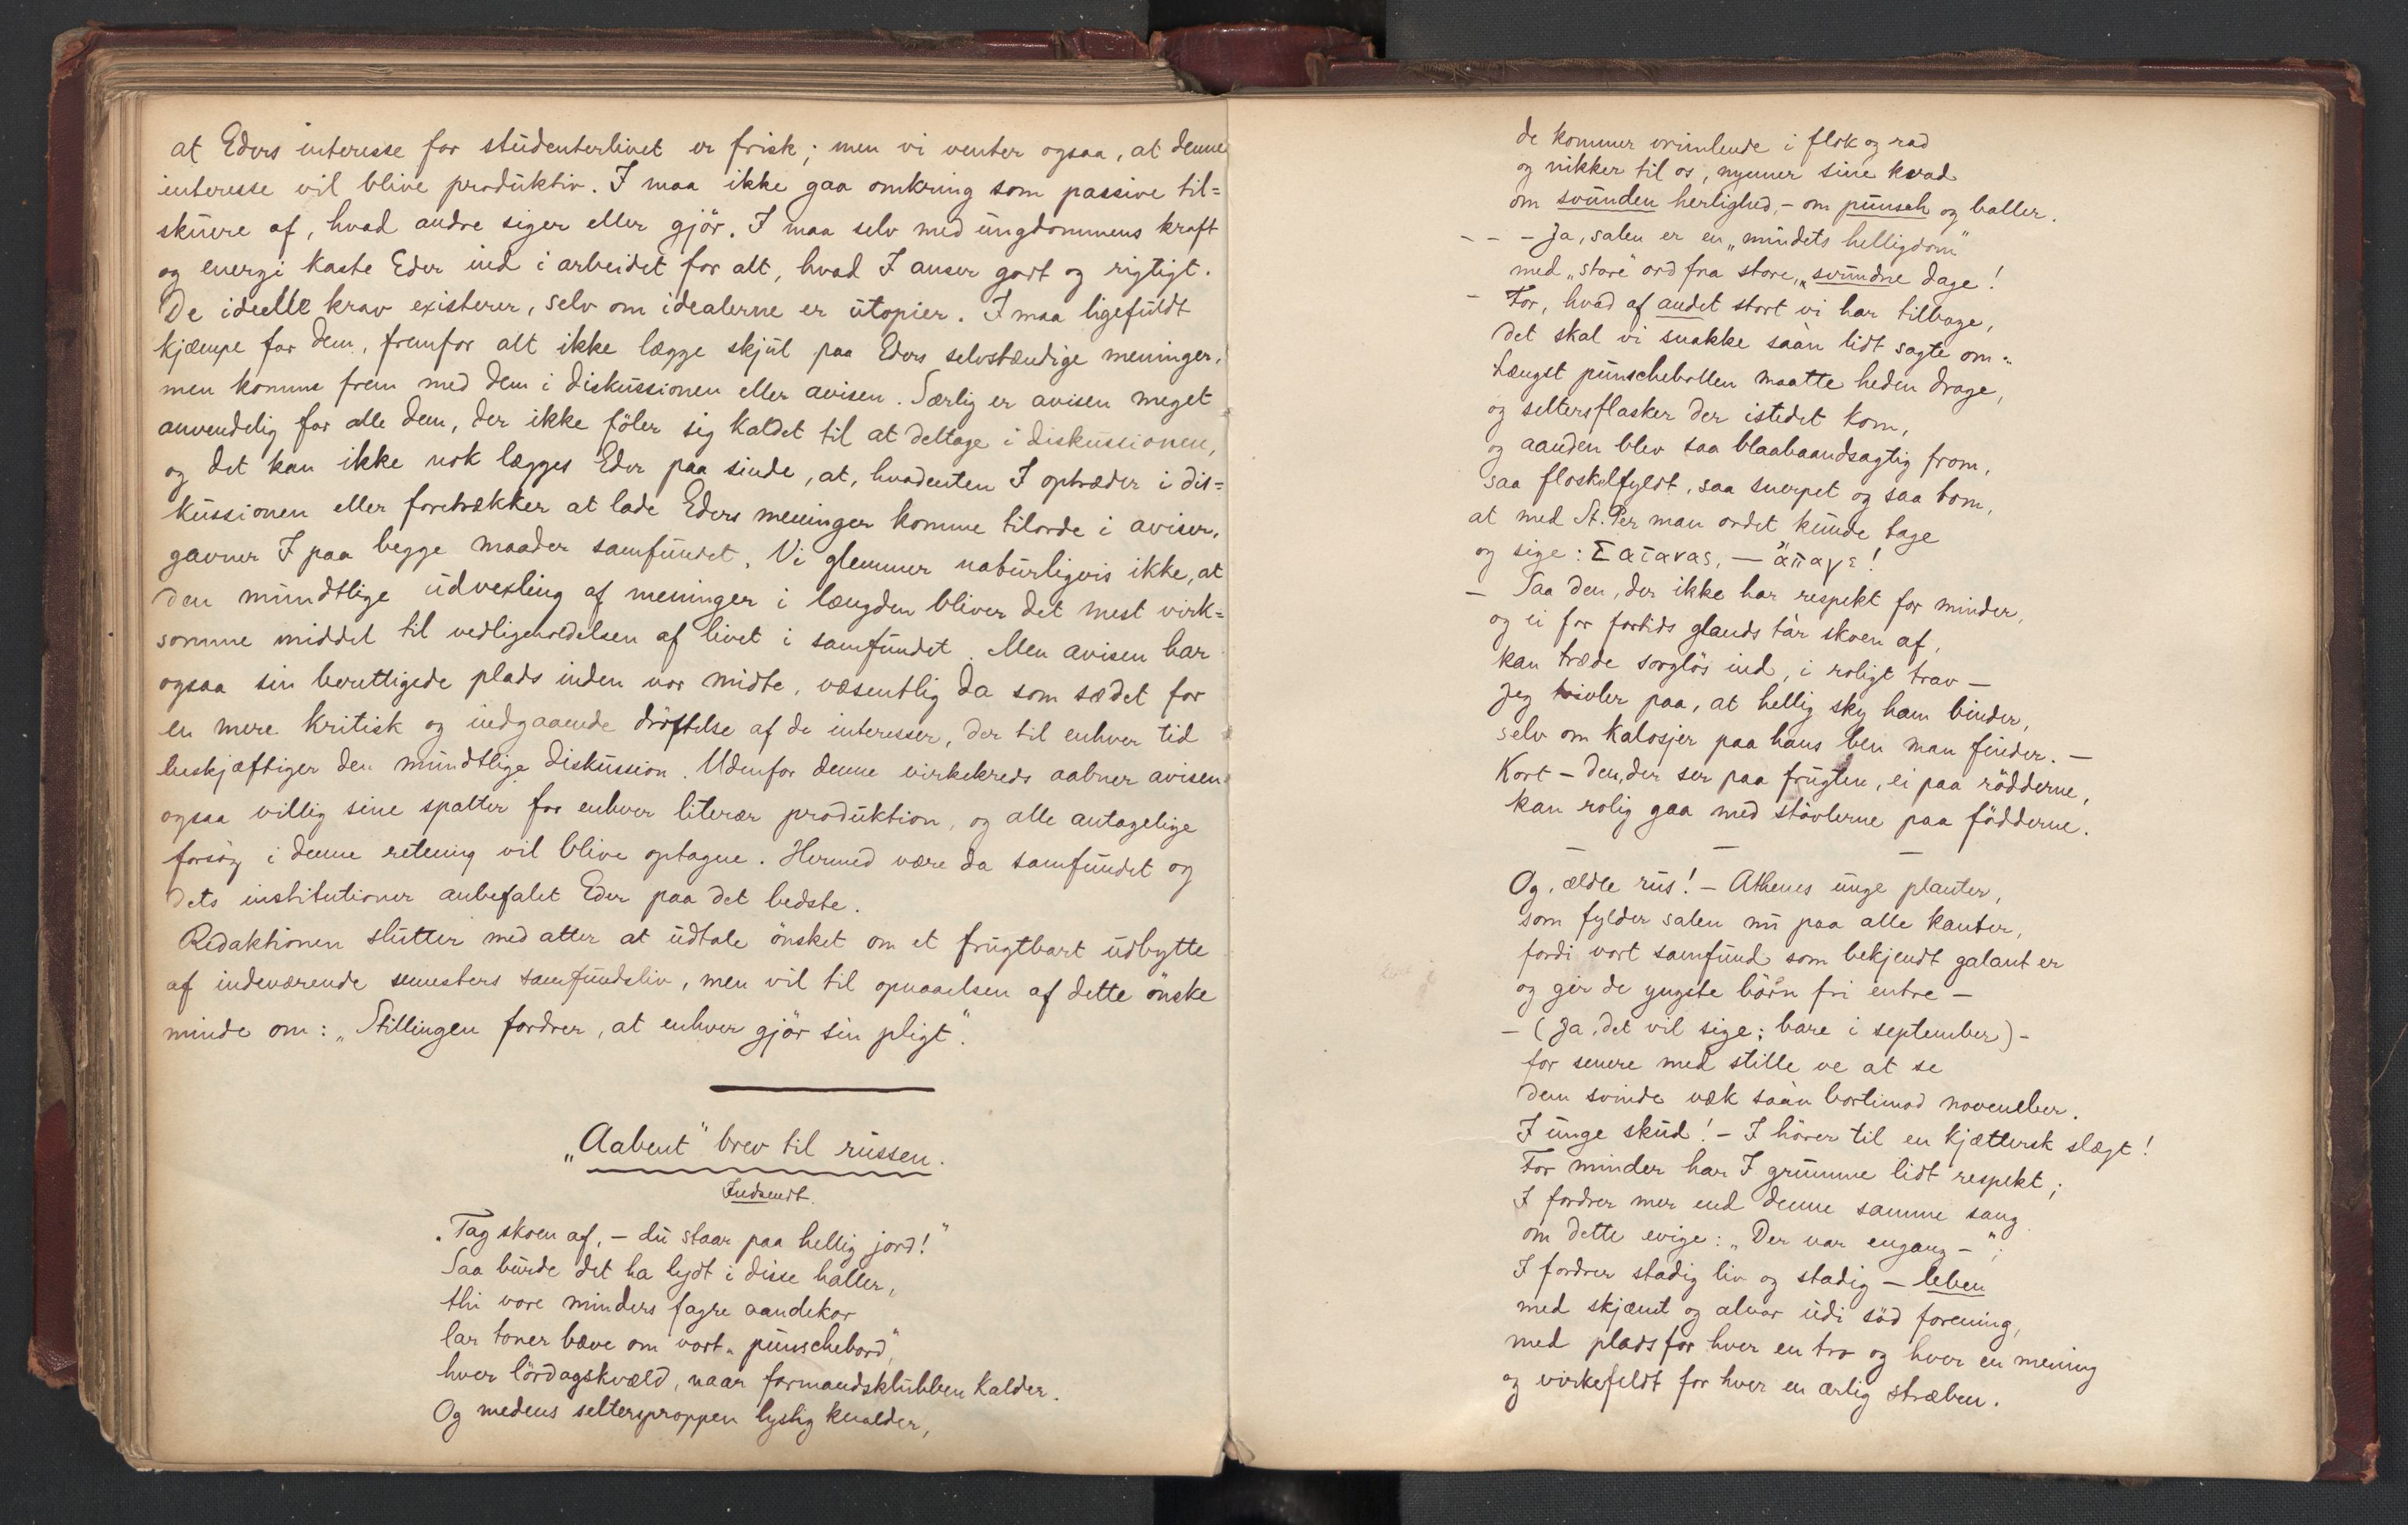 at Eders interesse for studenterlivet er frisk; men vi venter ogsaa, at denne
interesse vil blive produktiv. I maa ikke gaa omkring som passive til=
skuere af, hvad andre siger eller gjör. I maa selv med ungdommens kraft
og energi kaste Eder ind i arbeidet for alt, hvad I anser godt og rigtigt.
De ideelle krav existerer, selv om idealerne er utopier. I maa ligefuldt
kjæmpe for dem, fremfor alt ikke lægge skjul paa Eders selvstændige meninger,
men komme frem med dem i diskussionen eller avisen. Særlig er avisen meget
anvendelig for alle dem, der ikke föler sig kaldet til at deltage i diskussionen,
og det kan ikke nok lægges Eder paa sinde, at, hvadenten I optræder i dis=
kussionen eller foretrækker at lade Eders meninger komme tilorde i aviser,
gavner I paa begge maader samfundet. Vi glemmer naturligvis ikke, at
den mundtlige udvexling af meninger i længden bliver det mest virk=
somme middel til vedligeholdelsen af livet i samfundet. Men avisen har
ogsaa sin berettigede plads inden vor midte, væsentlig da som sædet for
en mere kritisk og indgaaende dröftelse af de interesser, der til enhver tid
beskjæftiger den mundtlige diskussion. Udenfor denne virkekreds aabner avisen
ogsaa villig sine spalter for enhver literær produktion, og alle antagelige
forsög i denne retning vil blive optagne. Hermed være da samfundet og
dets institutioner anbefalet Eder paa det bedste.
Redaktionen slutter med atter at udtale önsket om et frugtbart udbytte
af indeværende semesters samfundsliv, men vil til opnaaelsen af dette önske
minde om: „Stillingen fordrer, at enhver gjör sin pligt".
„Aabent" brev til russen.
Indsendt.
„Tag skoen af, – du staar paa hellig jord!"
Saa burde det ha lydt i disse haller,
thi vore minders fagre aandekor
lar toner bæve om vort „punschebord",
hver lördagskvæld, naar formandsklubben kalder.
Og medens seltersproppen lystig knalder,
de kommer vrimlende i flok og rad
og nikker til os, nynner sine kvad
om svunden herlighed, – om punsch og baller.
– – – Ja, salen er en „mindets helligdom"
med „store" ord fra store, „svundne dage!
– For, hvad af andet stort vi har tilbage,
det skal vi snakke saàn lidt sagte om:
Længst punschebollen maatte heden drage,
og seltersflasker der istedet kom,
og aanden blev saa blaabaandsagtig from,
saa floskelfyldt, saa snerpet og saa tom,
at med St. Per man ordet kunde tage
og sige: Σατανας, — ἄπαγε!
– Saa den, der ikke har respekt for minder,
og ei for fortids glands tàr skoen af,
kan træde sorglös ind, i roligt trav –
Jeg tvivler paa, at hellig sky ham binder,
selv om kalosjer paa hans ben man finder. –
Kort – den, der ser paa frugten, ei paa rödderne,
kan rolig gaa med stövlerne paa födderne.
– – –
Og, ældle rus! – Athenes unge planter,
som fylder salen nu paa alle kanter,
fordi vort samfund som bekjendt galant er
og gir de yngste börn fri entre –
– (Ja, det vil sige: bare i september) –
for senere med stille ve at se
dem svinde væk saàn bortimod november.
I unge skud! – I hörer til en kjættersk slægt!
For minder har I grumme lidt respekt;
I fordrer mer end denne samme sang
om dette evige: „Der var engang –";
I fordrer stadig liv og stadig – leben
med skjæmt og alvor udi söd forening,
med plads for hver en tro og hver en mening
og virkefeldt for hver en ærlig stræben.